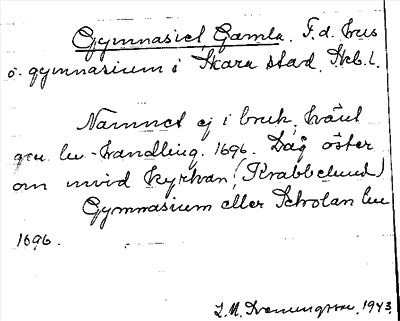 Gymnasiet, Gamla. F.d. hus
o. gymnasium i Skara stad, Skb. l.
Namnet ej i bruk, hvaut
gen. lev-handling. 1696. Låg öster
om invid kyrkan, (Krabbelund)
Gymnasium eller Scholan lev
1696.
1943.